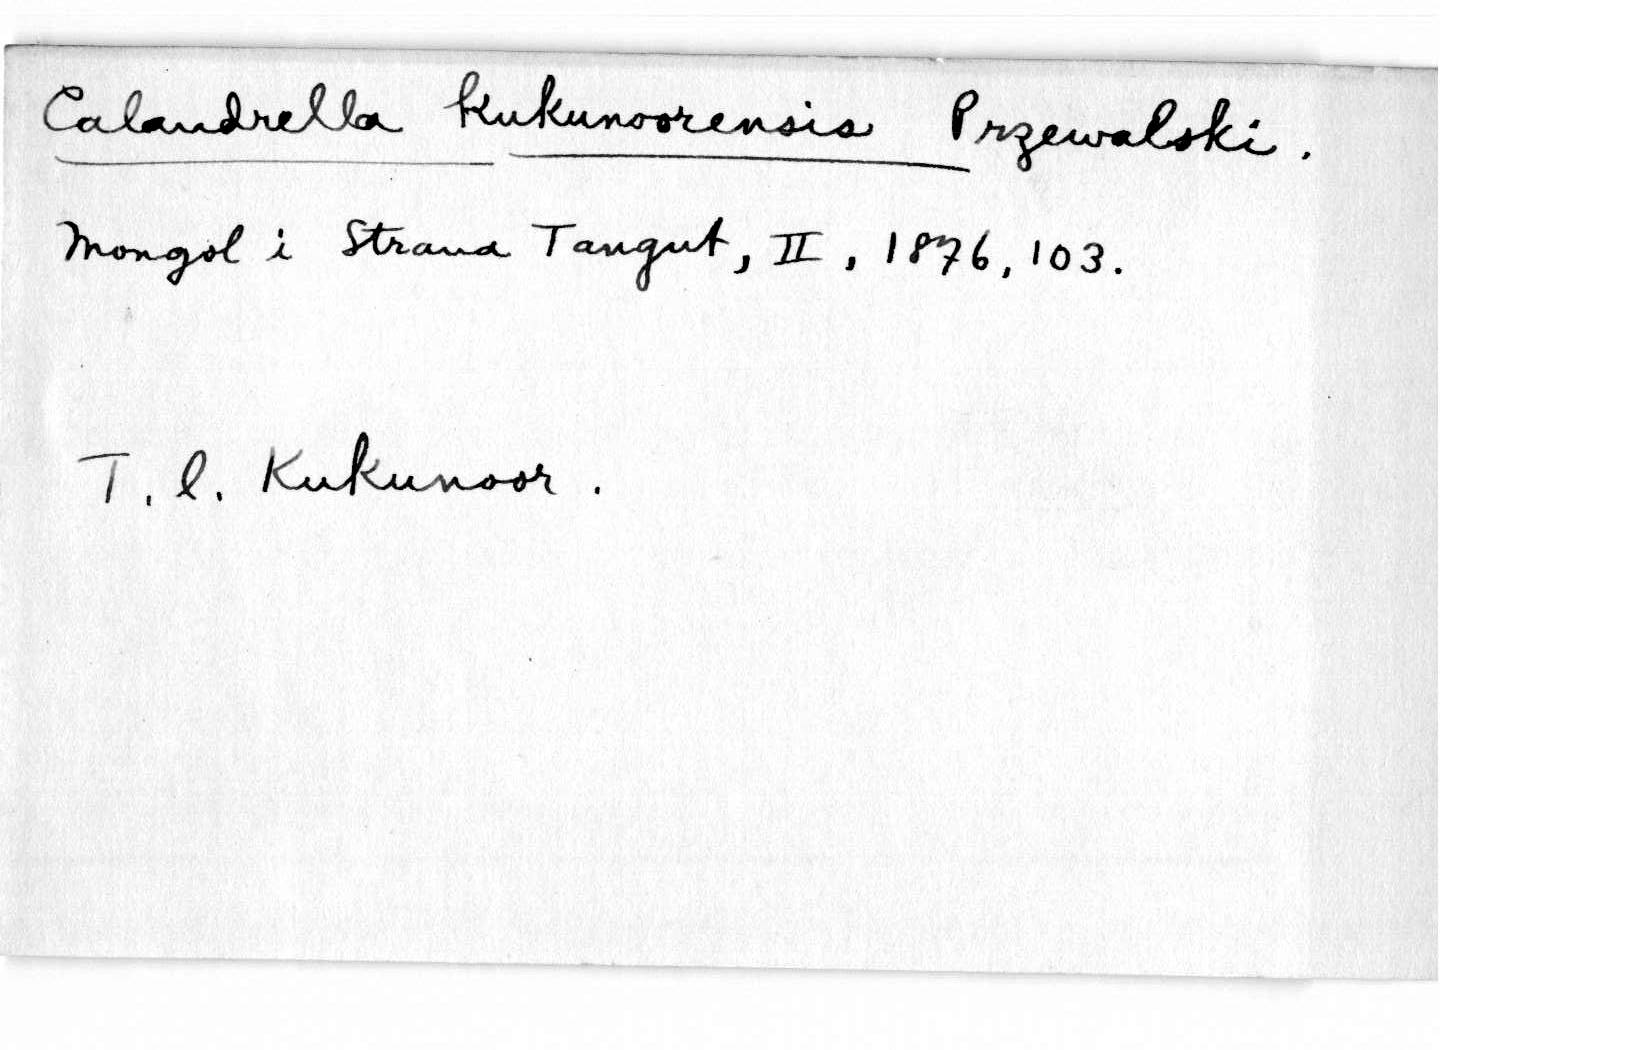 Calandrella kukunoorensis Przewalski.
Mongol i Strana Tangut, II, 1876, 103.
T. l. Kukunoor.